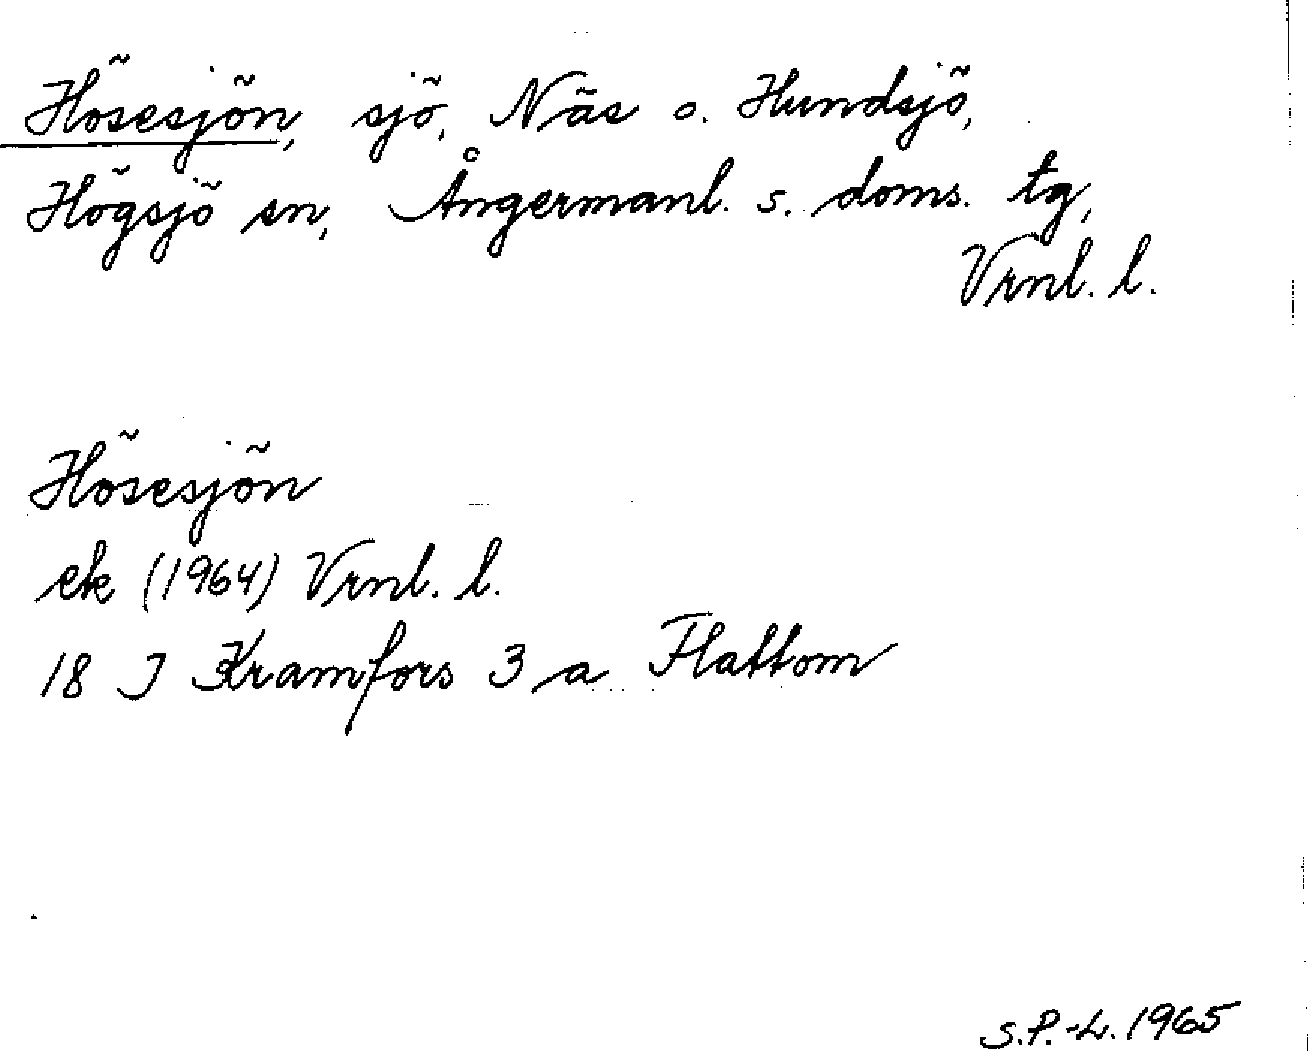 Hösesjön, sjö, Näs o. Hundsjö,
Högsjö sn, Ångermanl. s. doms. tg,
Vrnl. l.
Hösesjön
ek (1964) Vrnl. l.
18 J Kramfors 3 a Flattom
S.P.-L. 1965